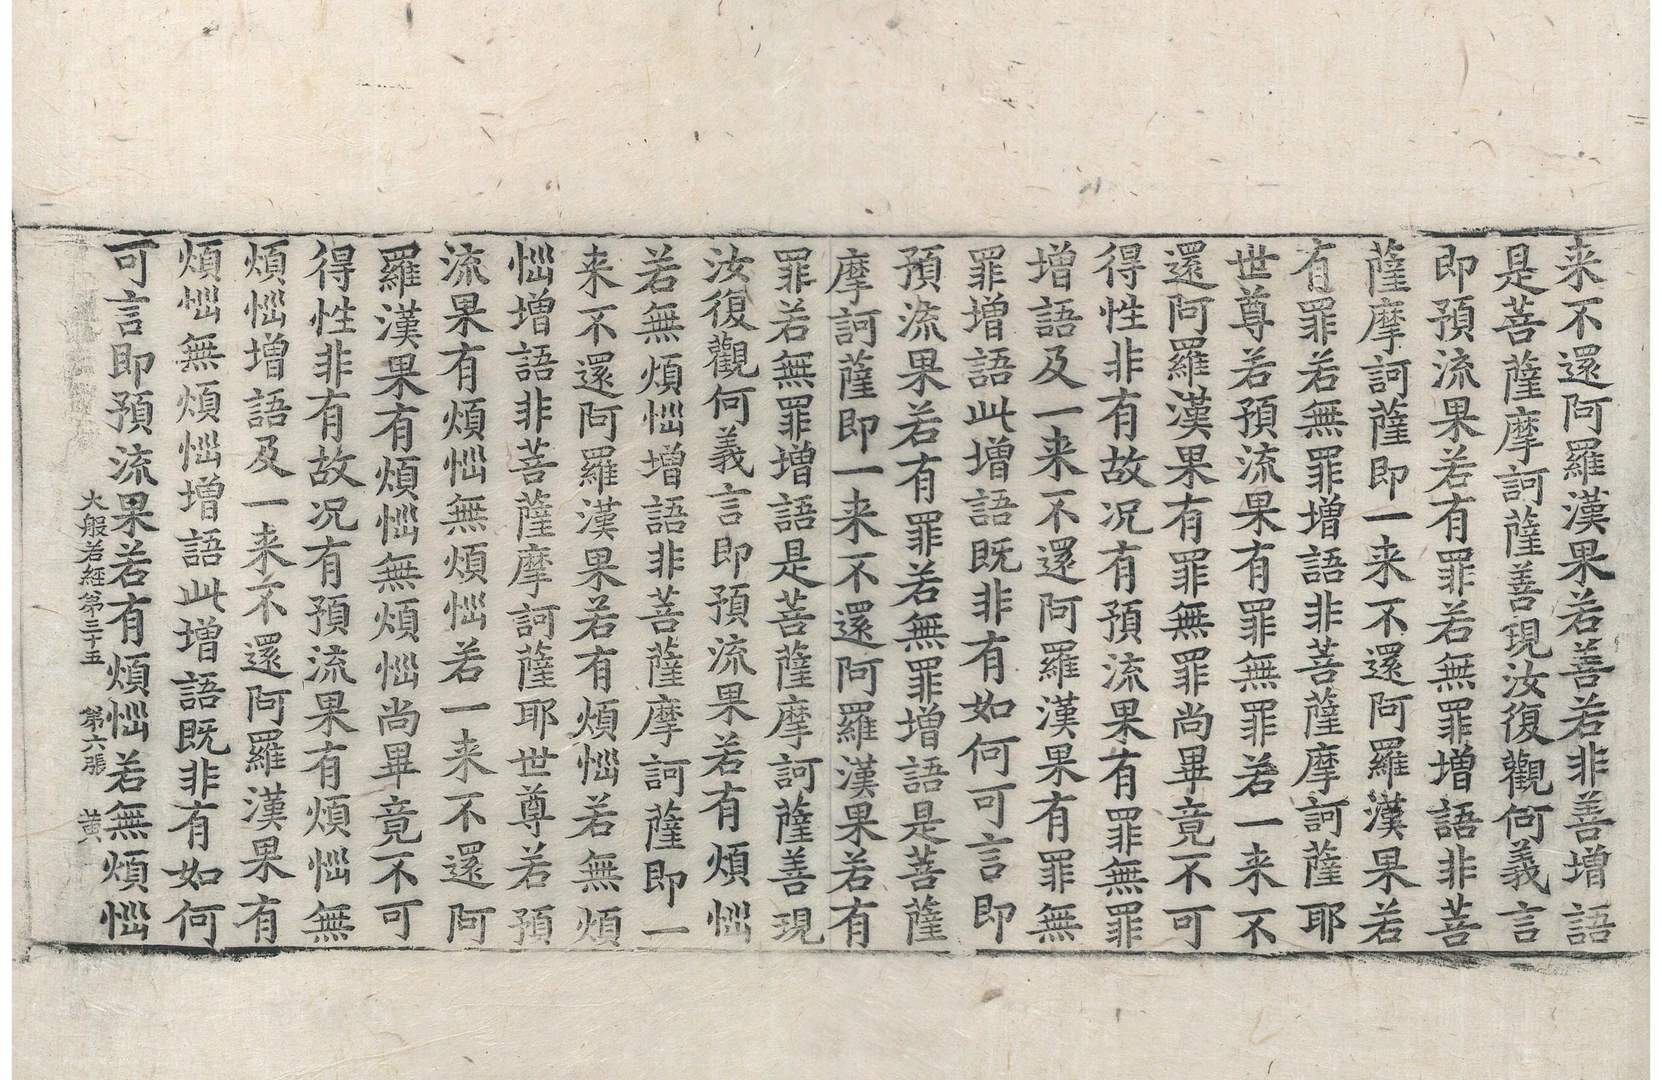 来不還阿羅漢果若善若非善增語
是菩薩摩訶薩善現汝復觀何義言
即預流果若有罪若無罪增語非菩
薩摩訶薩即一来不還阿羅漢果若
有罪若無罪增語非菩薩摩訶薩耶
世尊若預流果有罪無罪若一来不
還阿羅漢果有罪無罪尚畢竟不可
得性非有故况有預流果有罪無罪
增語及一来不還阿羅漢果有罪無
罪增語此增語既非有如何可言即
預流果若有罪若無罪增語是菩薩
摩訶薩即一来不還阿羅漢果若有
罪若無罪增語是菩薩摩訶薩善現
汝復觀何義言即預流果若有煩惱
若無煩惱增語非菩薩摩訶薩即一
来不還阿羅漢果若有煩惱若無煩
惱增語非菩薩摩訶薩耶世尊若預
流果有煩惱無煩惱若一来不還阿
羅漢果有煩惱無煩惱尚畢竟不可
得性非有故况有預流果有煩惱無
煩惱增語及一来不還阿羅漢果有
煩惱無煩惱增語此增語既非有如何
可言即預流果若有煩惱若無煩惱
大般若經第三十五 第六張 黃